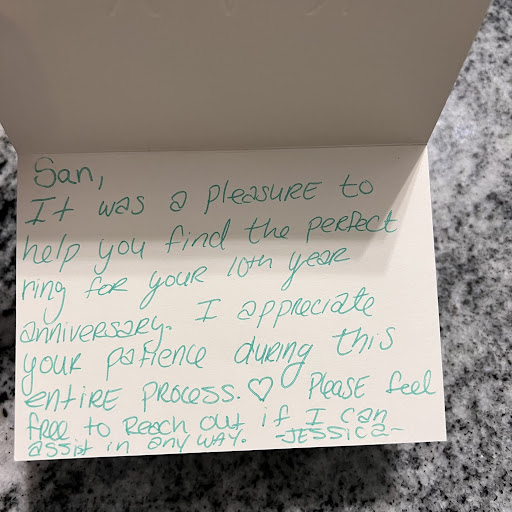 San,
It was a pleasure to
help you find the perfect
ring for your 10th year
anniversary. I appreciate
your patience during this
entire process.♡ Please feel
free to reach out if I can
assist in any way. -Jessica-